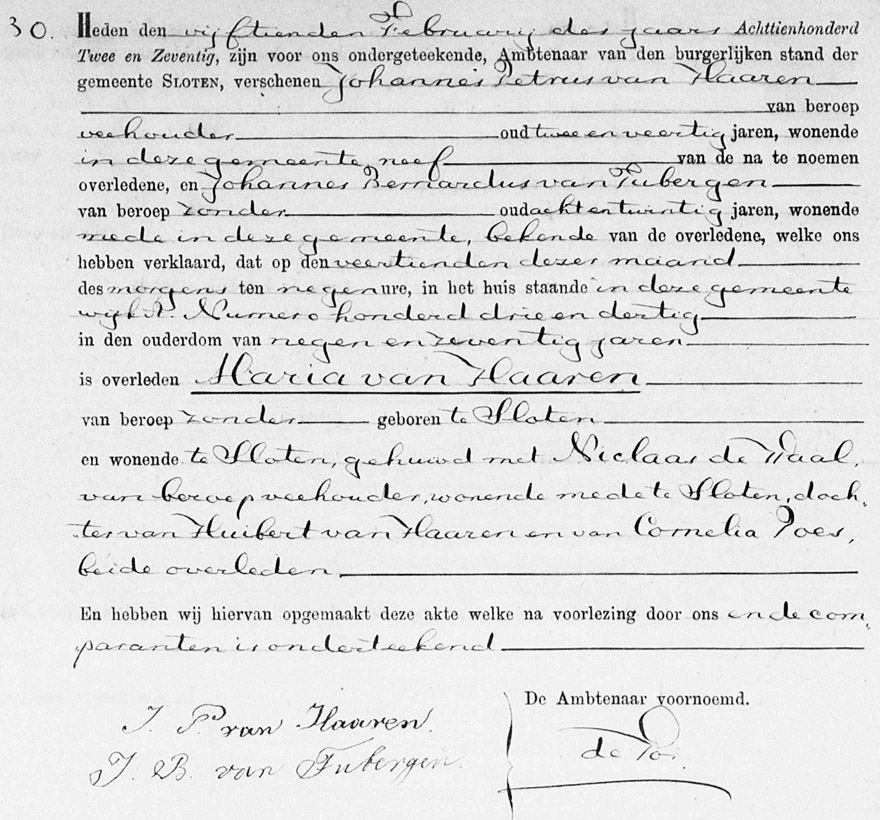 30. Heden den vijftienden Februarij des jaars Achttienhonderd
Twee en Zeventig, zijn voor ons ondergeteekende, Ambtenaar van den burgerlijken stand der
gemeente SLOTEN, verschenen Johannes Petrus van Haaren
van beroep
veehouder oud twee en veertig jaren, wonende
in deze gemeente, neef van de na te noemen
overledene, en Johannes Bernardus van Tubergen
van beroep zonder oud acht en twintig jaren, wonende
mede in deze gemeente, bekende van de overledene, welke ons
hebben verklaard, dat op den veertienden dezer maand
des morgens ten negen ure, in het huis staande in deze gemeente
wijk A. Numero honderd drie en dertig
in den ouderdom van negen en zeventig jaren
is overleden Maria van Haaren
van beroep zonder geboren te Sloten
en wonende te Sloten, gehuwd met Niclaas de Waal,
van beroep veehouder, wonende mede te Sloten, doch-
ter van Huibert van Haaren en van Cornelia Poes,
beide overleden.
En hebben wij hiervan opgemaakt deze akte welke na voorlezing door ons en de com-
paranten is onderteekend
De Ambtenaar voornoemd.
J. P. van Haaren.
J. B. van Tubergen.